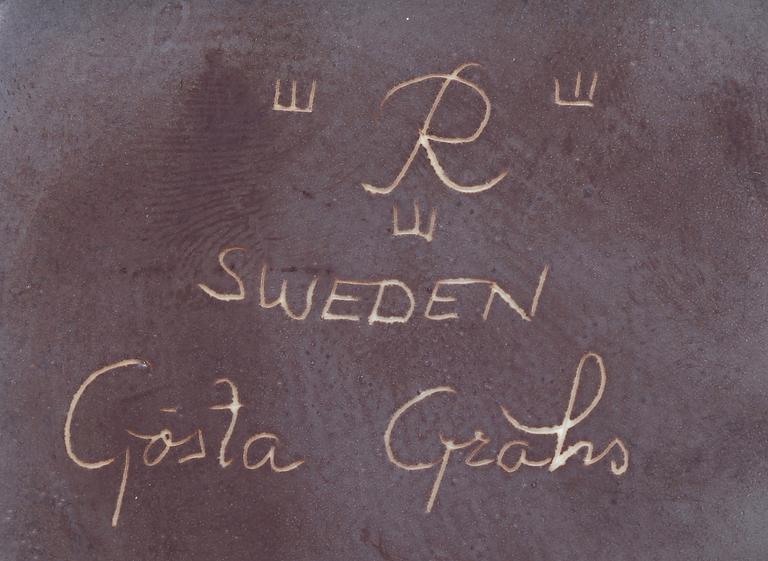 R
SWEDEN
Gösta Gråhs